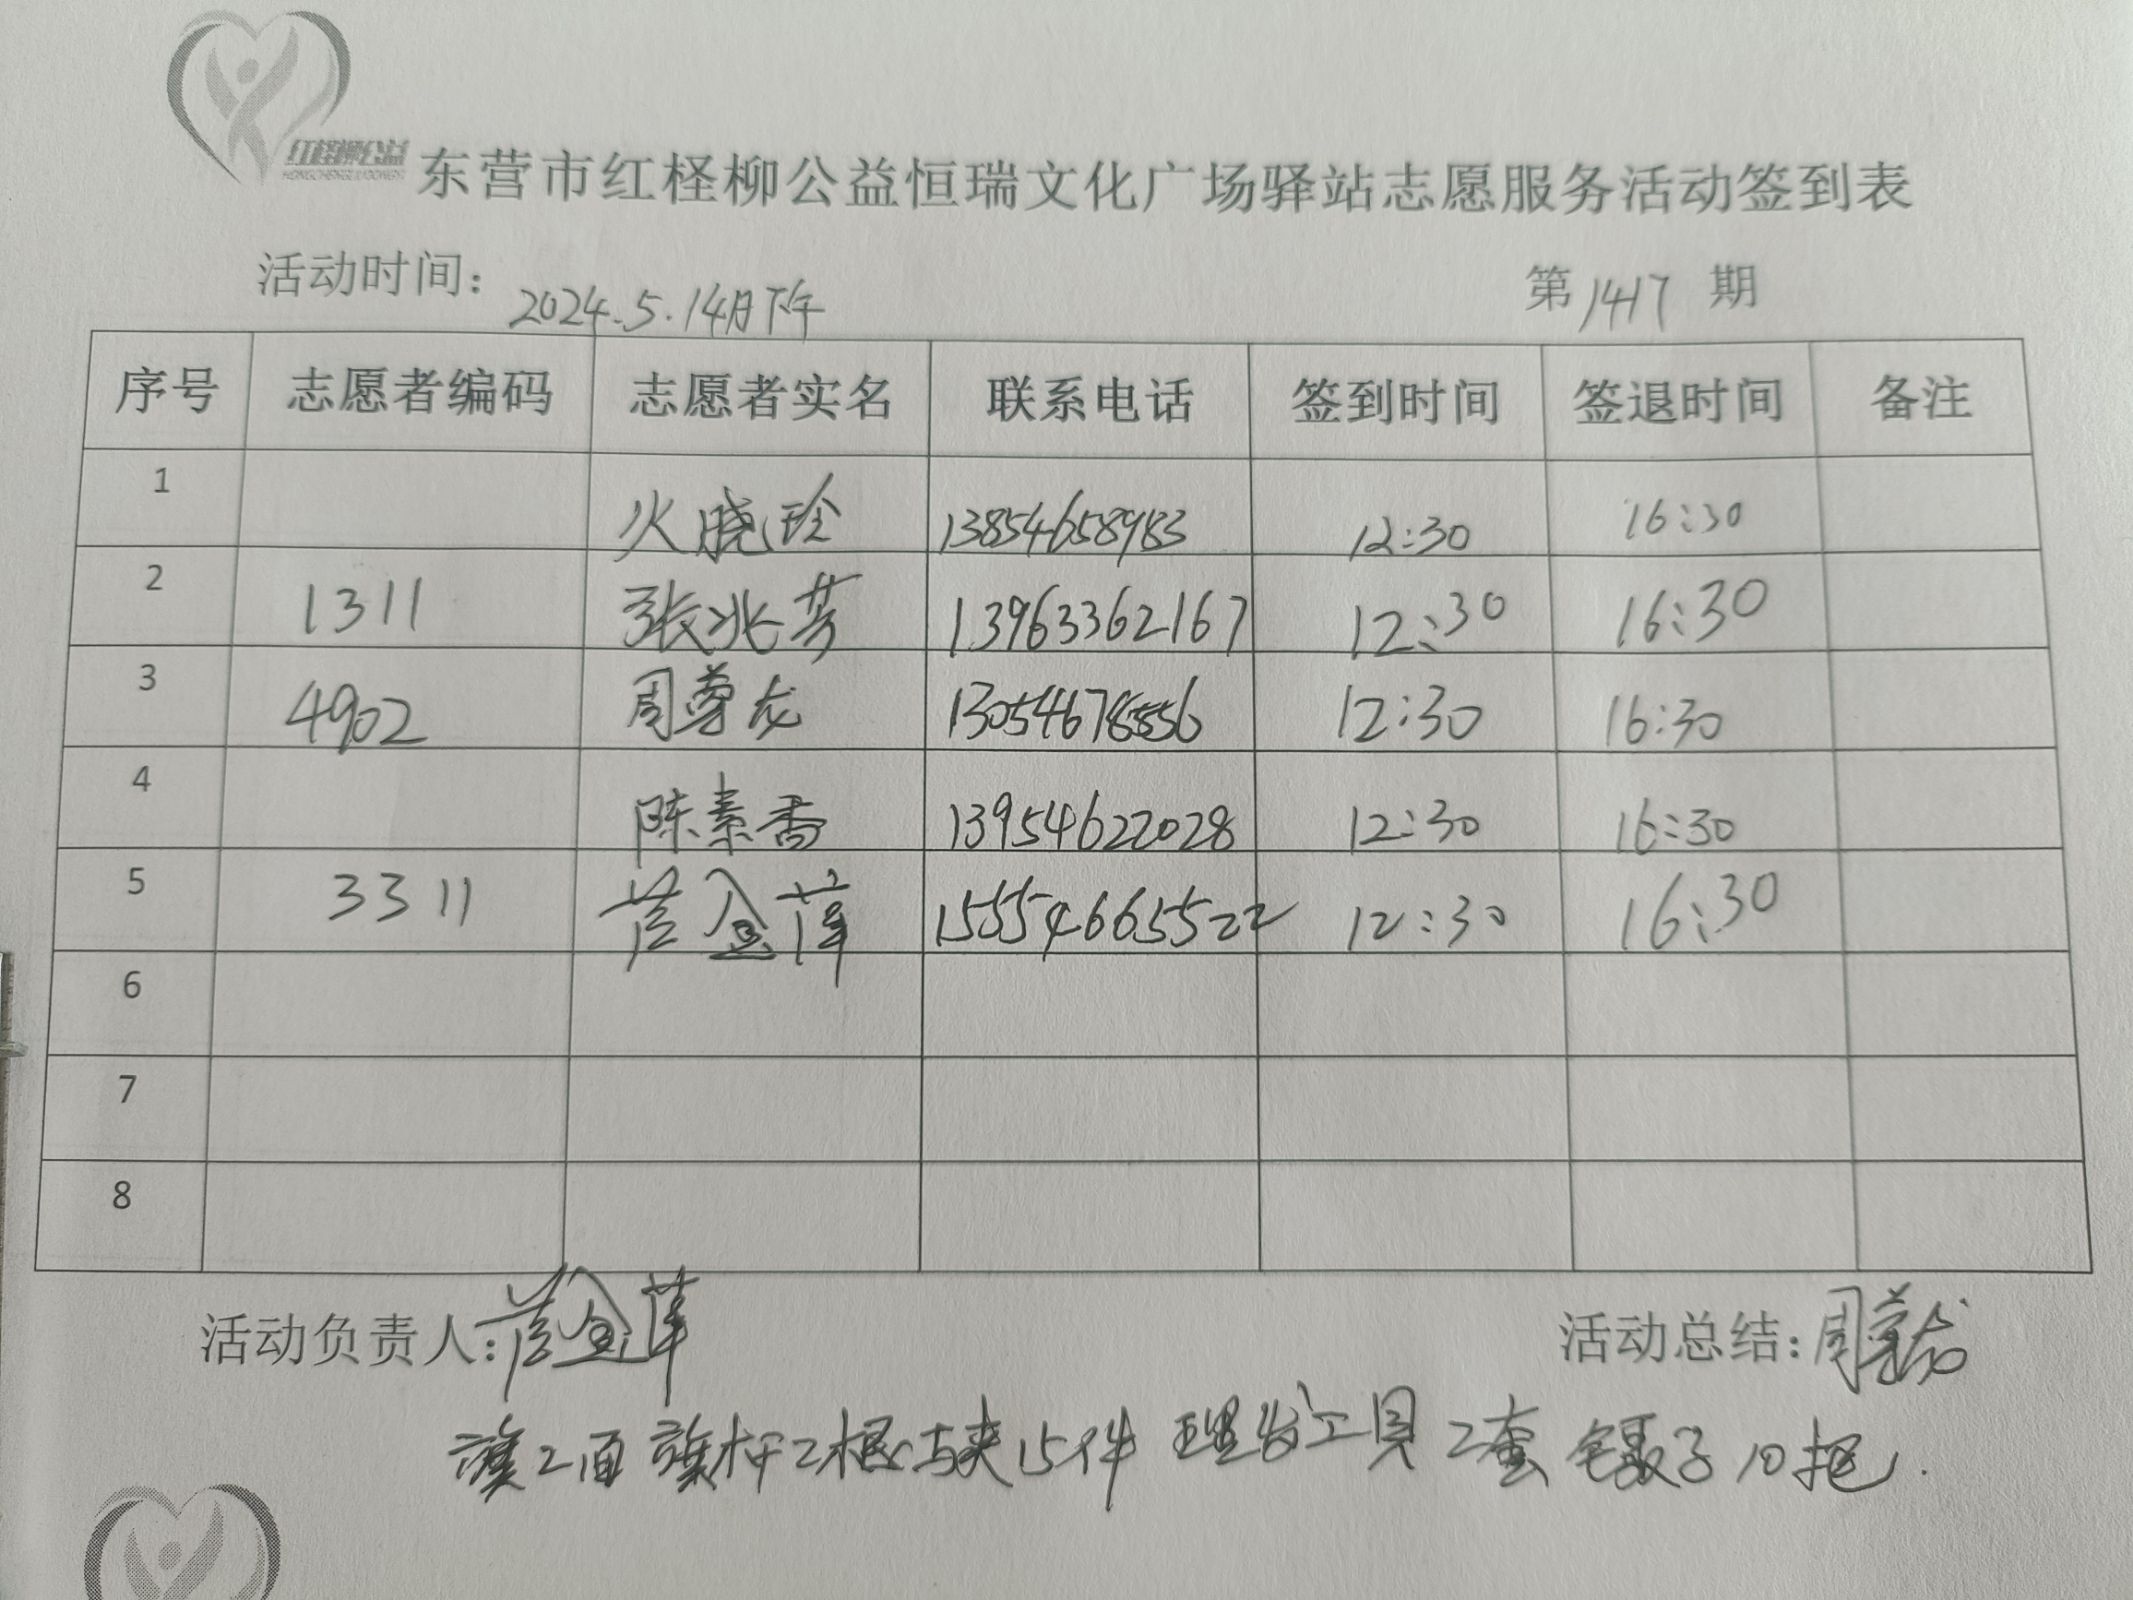 红柽柳公益
东营市红柽柳公益恒瑞文化广场驿站志愿服务活动签到表
活动时间: 2024.5.14日下午 第1417期
序号 志愿者编码 志愿者实名 联系电话 签到时间 签退时间 备注
1 火晓玲 13854658983 12:30 16:30
2 1311 张兆芳 13963362167 12:30 16:30
3 4902 周尊龙 13054678556 12:30 16:30
4 陈素香 13954622028 12:30 16:30
5 3311 金萍 15554665522 12:30 16:30
6
7
8
活动负责人: 金萍 活动总结: 周尊龙
旗2面 旗杆2根 马夹15件 理发工具2套 镊子10把.